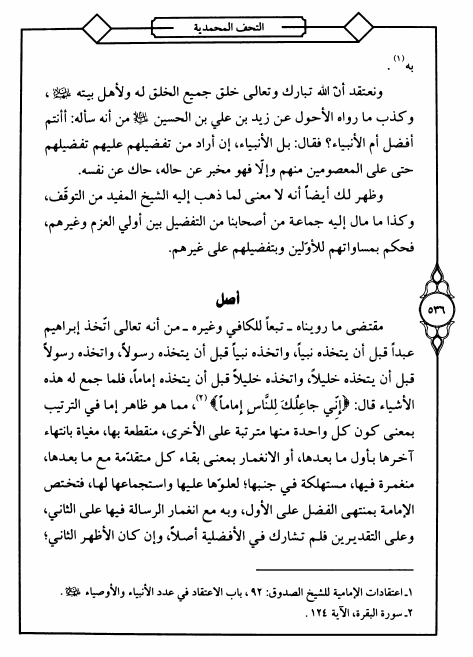 التحف المحمدية
به(١).
ونعتقد أنّ الله تبارك وتعالى خلق جميع الخلق له ولأهل بيته ،
وكذب ما رواه الأحول عن زيد بن علي بن الحسين من أنه سأله: أأنتم
أفضل أم الأنبياء؟ فقال: بل الأنبياء، إن أراد من تفضيلهم عليهم تفضيلهم
حتى على المعصومين منهم وإلّا فهو مخبر عن حاله، حاك عن نفسه.
وظهر لك أيضاً أنه لا معنى لما ذهب إليه الشيخ المفيد من التوقّف،
وكذا ما مال إليه جماعة من أصحابنا من التفضيل بين أولي العزم وغيرهم،
فحكم بمساواتهم للأوّلين وبتفضيلهم على غيرهم.
أصل
٥٣٦
مقتضى ما رويناه ـ تبعاً للكافي وغيره ـ من أنه تعالى اتّخذ إبراهيم
عبداً قبل أن يتخذه نبياً، واتخذه نبياً قبل أن يتخذه رسولاً، واتخذه رسولاً
قبل أن يتخذه خليلاً، واتخذه خليلاً قبل أن يتخذه إماماً، فلما جمع له هذه
الأشياء قال: ﴿إِنِّي جاعِلُكَ لِلنَّاسِ إِماماً﴾(٢)، مما هو ظاهر إما في الترتيب
بمعنى كون كل واحدة منها مترتبة على الأخرى، منقطعة بها، مغياة بانتهاء
آخرها بأول ما بعدها، أو الانغمار بمعنى بقاء كل متقدّمة مع ما بعدها،
منغمرة فيها، مستهلكة في جنبها؛ لعلوّها عليها واستجماعها لها، فتختص
الإمامة بمنتهى الفضل على الأول، وبه مع انغمار الرسالة فيها على الثاني،
وعلى التقديرين فلم تشارك في الأفضلية أصلاً، وإن كان الأظهر الثاني؛
١ـ اعتقادات الإمامية للشيخ الصدوق: ٩٢، باب الاعتقاد في عدد الأنبياء والأوصياء .
٢ـ سورة البقرة، الآية ١٢٤.